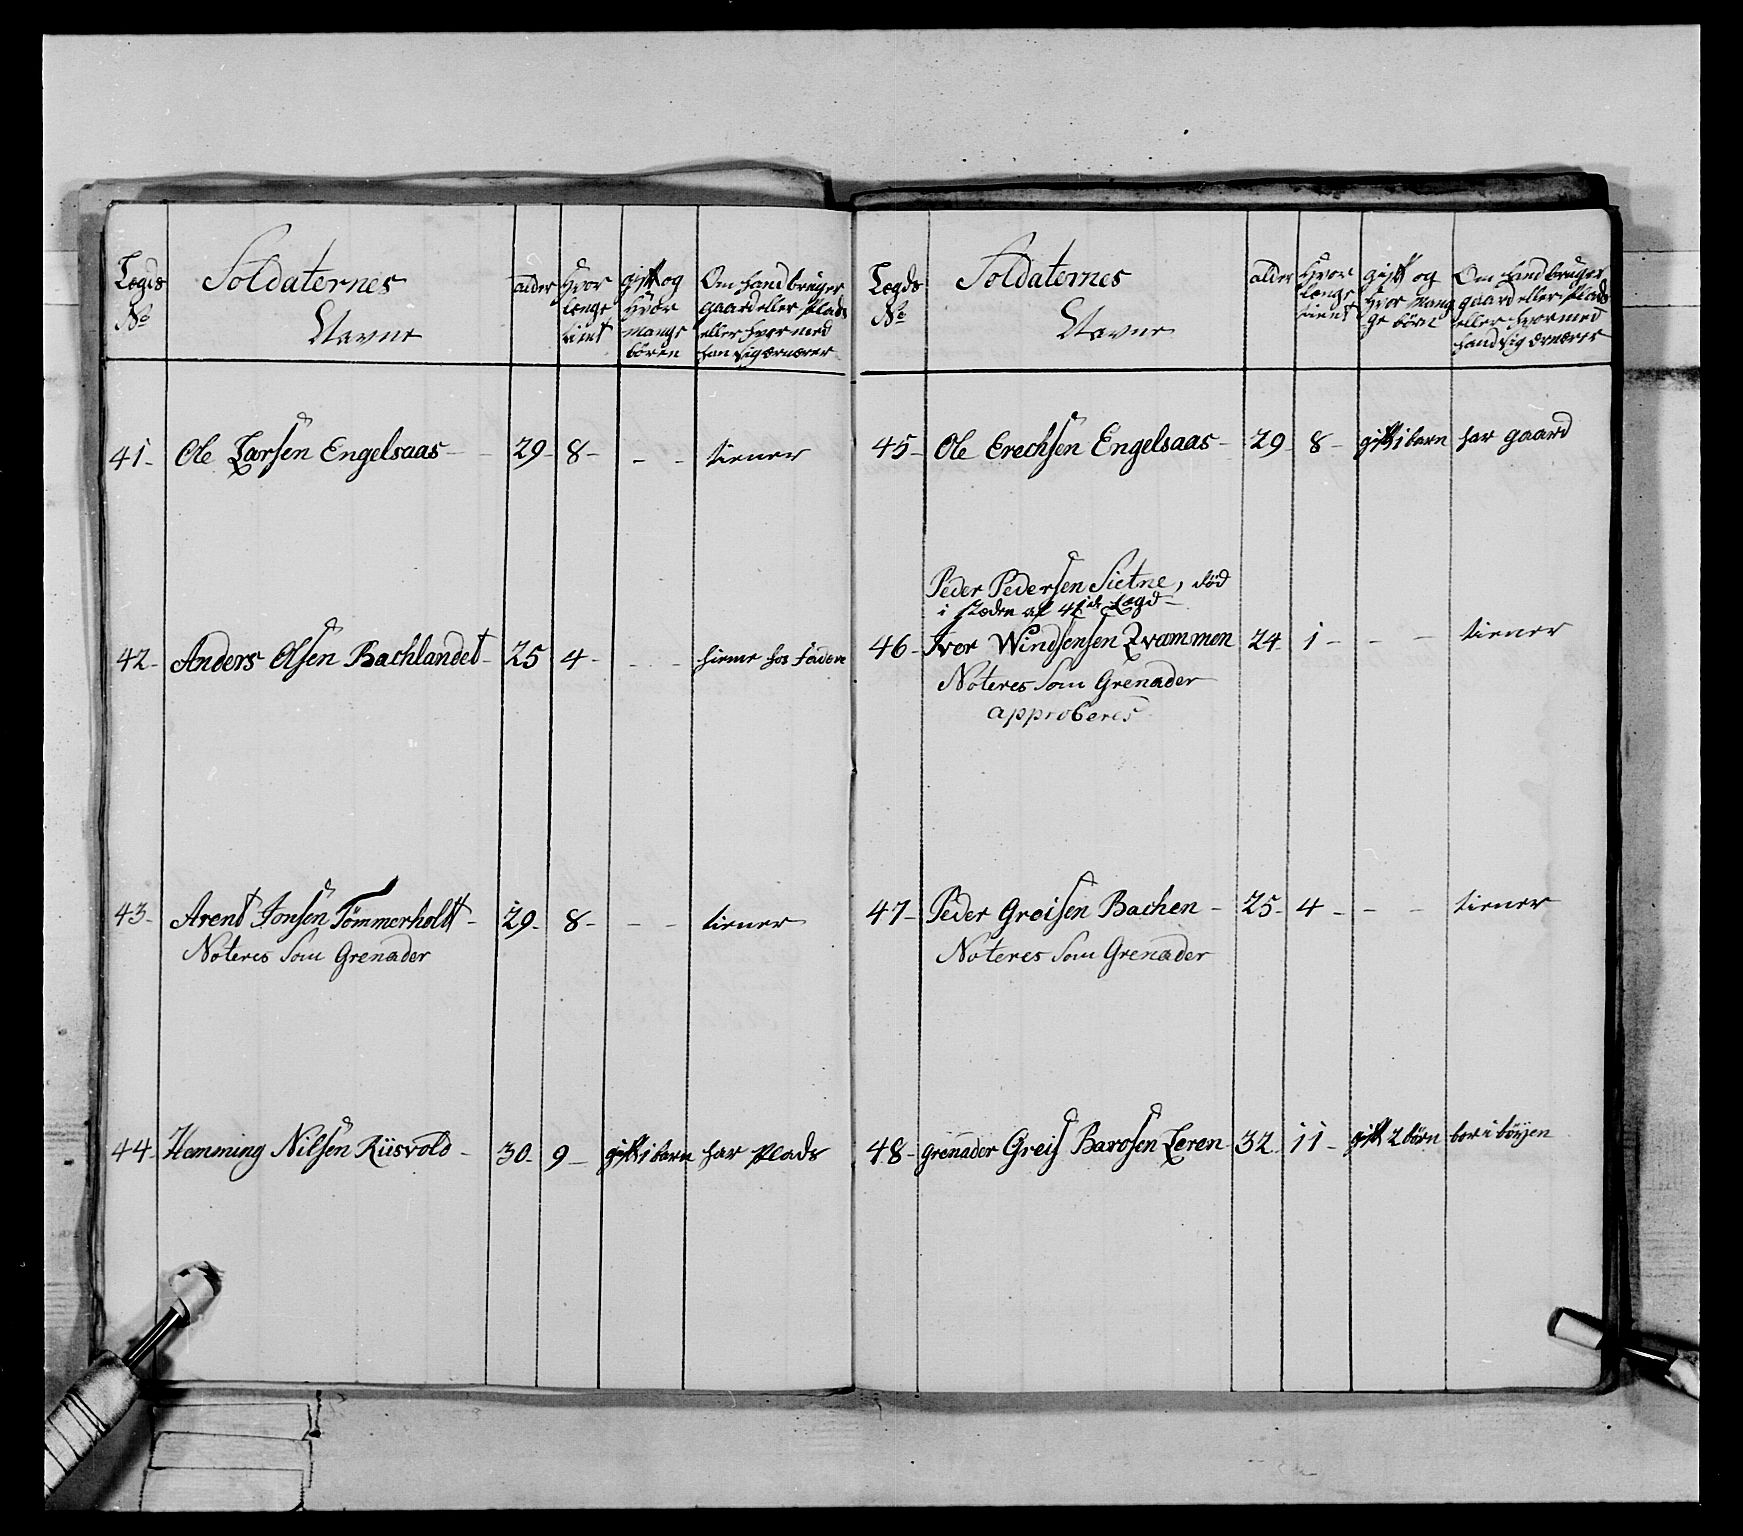 Lægds No
Soldaternes Navne
alder
Hvor længe tient
gift og hvor mange børen
Om hand bruger gaard eller Plads eller hvormed han sig ernærer
41- Ole Larsen Engelsaas - 29- 8- - - tiener
42- Anders Olsen Bachlandet- 25 4- - - hieme hos faderen
43- Arent Jonsen Tömmerholtt- 29- 8- - - tiener
Noteres som Grenader
44- Hemming Nilsen Riisvold - 30- 9- gift 1 barn har Plads
Lægds No
Soldaternes Navne
alder
Hvor længe tient
gift og Hvor mange børn
Om hand bruger gaard eller Plads eller hvormed hand sig ernærer
45- Ole Erechsen Engelsaas- 29 8- gift 1 barn har gaard
Peder Pedersen Sietne, død
i stæden af 41de Lægd-
46- Iver Windsensen Qvammen 24- 1- - - tiener
Noteres som Grenader
approberes
47- Peder Greisen Bachen - 25- 4- - - tiener
Noteres som Grenader
48- Grenader Greis Barosen Leren- 32 11- gift 2 börn boer i böyen